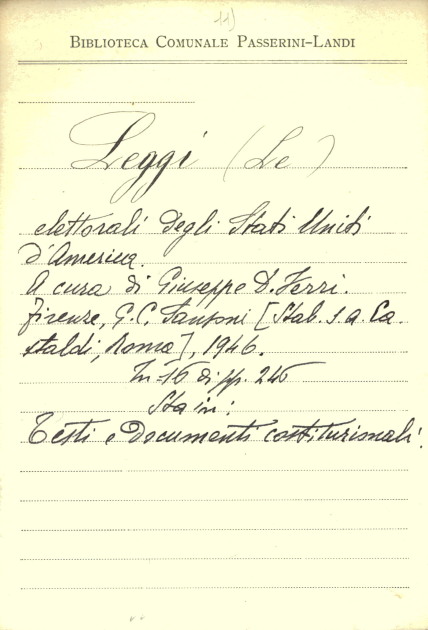 11)
BIBLIOTECA COMUNALE PASSERINI-LANDI
Leggi (Le)
elettorali degli Stati Uniti
d'America.
A cura di Giuseppe D. Ferri.
Firenze, G. C. Sansoni [Stab. s. a. Ca-
staldi, Roma], 1946.
In-16 di pp. 246
Sta in:
Testi e Documenti costituzionali.